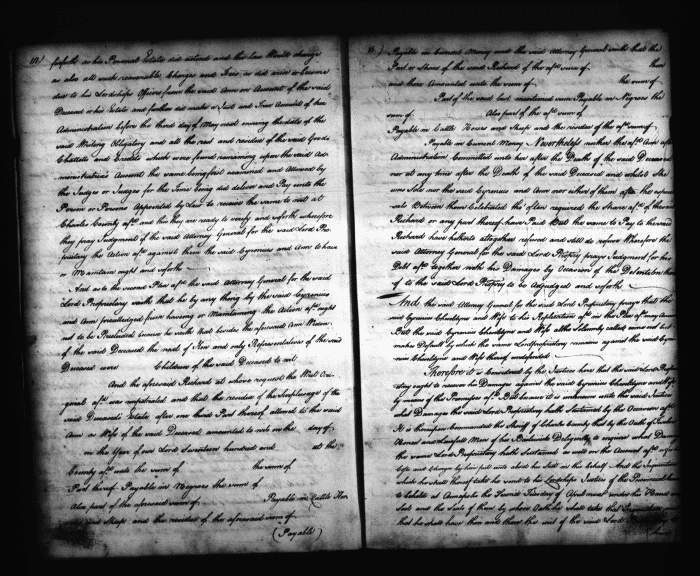 forfeith as his Personal Estate did extend and the Law would charge
as also all such reasonable Charges and Fees as did arise or become
due to his Lordships Officers from the said Ann on Account of the said
Deceased or his Estate and further did make a Just and True Account of her
Administration before the third day of May next ensuing the date of the
said Writing Obligatory and all the rest and residue of the said Goods
Chattels and Credits which were found remaining upon the said Ad-
ministration's Account the same being first examined and Allowed by
the Judge or Judges for the Time being did deliver and Pay unto the
Person or Persons Appointed by Law to receive the same to wit at
Charles County afd. and this they are ready to verify and soforth wherefore
they pray Judgment if the said Attorney General for the said Lord Pro-
prietary the Action afd. against them the said Cyrenius and Ann to have
or Maintain ought and soforth
And as to the second Plea afd. the said Attorney General for the said
Lord Proprietary saith that he by any thing by the said Cyrenius
and Ann from having or Maintaining the Action afd. ought
not to be Precluded because he saith that besides the aforesaid Ann Widow
of the said Deceased the next of Kin and only Representatives of the said
Deceased were Children of the said Deceased to wit
And the aforesaid Richard at whose request the Writ Ori-
ginal afd. was and that the residue of the Surplusage of the
said Deceaseds Estate after one third Part thereof allowed to the said
Ann as Wife of the said Deceased amounted to wit on the day of
in the Year of our Lord Seventeen hundred and at the
County afd. unto the sum of the sum of
Part thereof Payable in Negroes the sum of
Also part of the aforesaid sum of Payable in Cattle Hor
and Sheep and the residue of the aforesaid sum of
(Payable)
Payable in Current Money and the said Attorney General saith that the
Part or Share of the said Richard of the afd. sum of then
and there Amounted unto the sum of the sum of
Part of the said last mentioned sum Payable in Negroes the
sum of Also part of the afd. sum of
Payable in Cattle Horses and Sheep and the residue of the afd. sum of
Payable in Current Money Nevertheless neither the afd. Ann after
Administration Committed unto her after the Death of the said Deceased
nor at any time after the Death of the said Deceased and whilst She
was Sole nor the said Cyrenius and Ann nor either of them after the
Between them Celebrated tho' often required the Share afd. of the said
Richard or any part thereof have Paid But the same to Pay to the said
Richard have hitherto altogether refused and still do refuse Wherefore the
said Attorney General for the said Lord Proprty. prays Judgment for the
Debt afd. together with his Damages by Occasion of the Detention there
of to the said Lord Proprty to be Adjudged and soforth
And the said Attorney General for the said Lord Proprietary prays that the
said Cyrenius and Wife to his Replication afd. in the Plea afd. may Answer
But the said Cyrenius and Wife altho Solemnly called came not but
makes Default by which the same Lord Proprietary remains against the said Cyre-
nius and Wife thereof undefended
Therefore it is Considered by the Justices here that the said Lord Propri-
etary ought to recover his Damages against the said Cyrenius and Wife
by means of the Premises afd. But because it is unknown unto the said Justices
what Damages the said Lord Proprietary hath Sustained by the Occasion afd.
It is therefore Commanded the Sheriff of Charles County that by the Oath of Twelve
Honest and Lawfull Men of his Bailiwick Diligently to enquire what Damages
the same Lord Proprietary hath Sustained as well on the Account afd. as for his
Costs and Charges by him put unto about his Suit in this behalf And the Inquisition
which he shall thereof take he send to his Lordships Justices of the Provincial
to beheld at Annapolis the Second Tuesday of April next under his Hand and
Seal and the Seals of them by whose Oaths he shall take that Inquisition
that he shall have then and there the writ of the said Lord